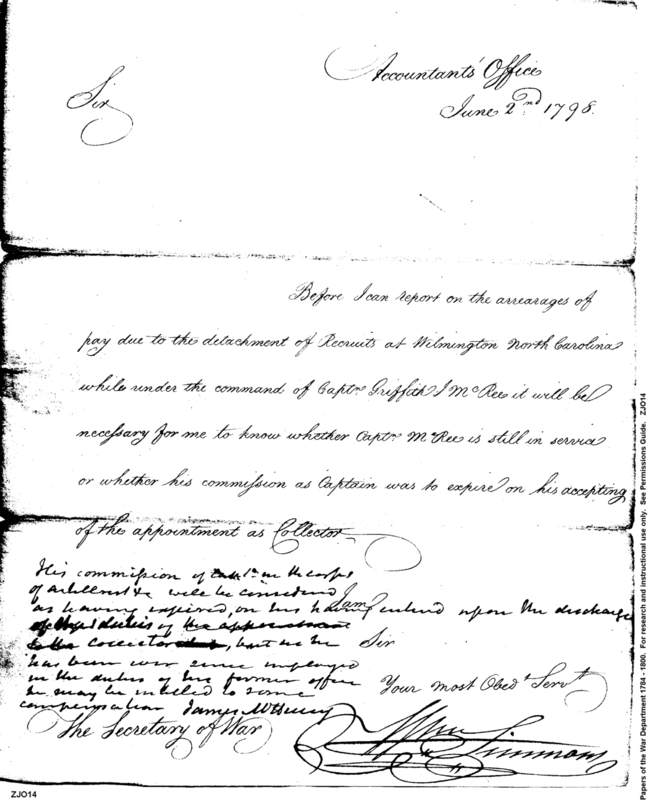 Accountants' Office
June 2nd. 1798.
Sir
Before I can report on the arrearages of
pay due to the detachment of Recruits at Wilmington North Carolina
while under the command of Captn. Griffith J McRee it will be
necessary for me to know whether Captn. McRee is still in service
or whether his commission as Captain was to expire on his accepting
of the appointment as Collector
His commission of in the corps
of artillerists &c will be considered
as having expired, on his having entered upon the discharge
of the duties of the
Collector, but as he
has been ever since employed
in the duties of his former office
he may be intitled to some
compensation James McHenry
I am
Sir
Your most Obedt. Servt.
Wm Simmons
The Secretary of War
ZJO14
Papers of the War Department 1784 - 1800. For research and instructional use only. See Permissions Guide. ZJO14